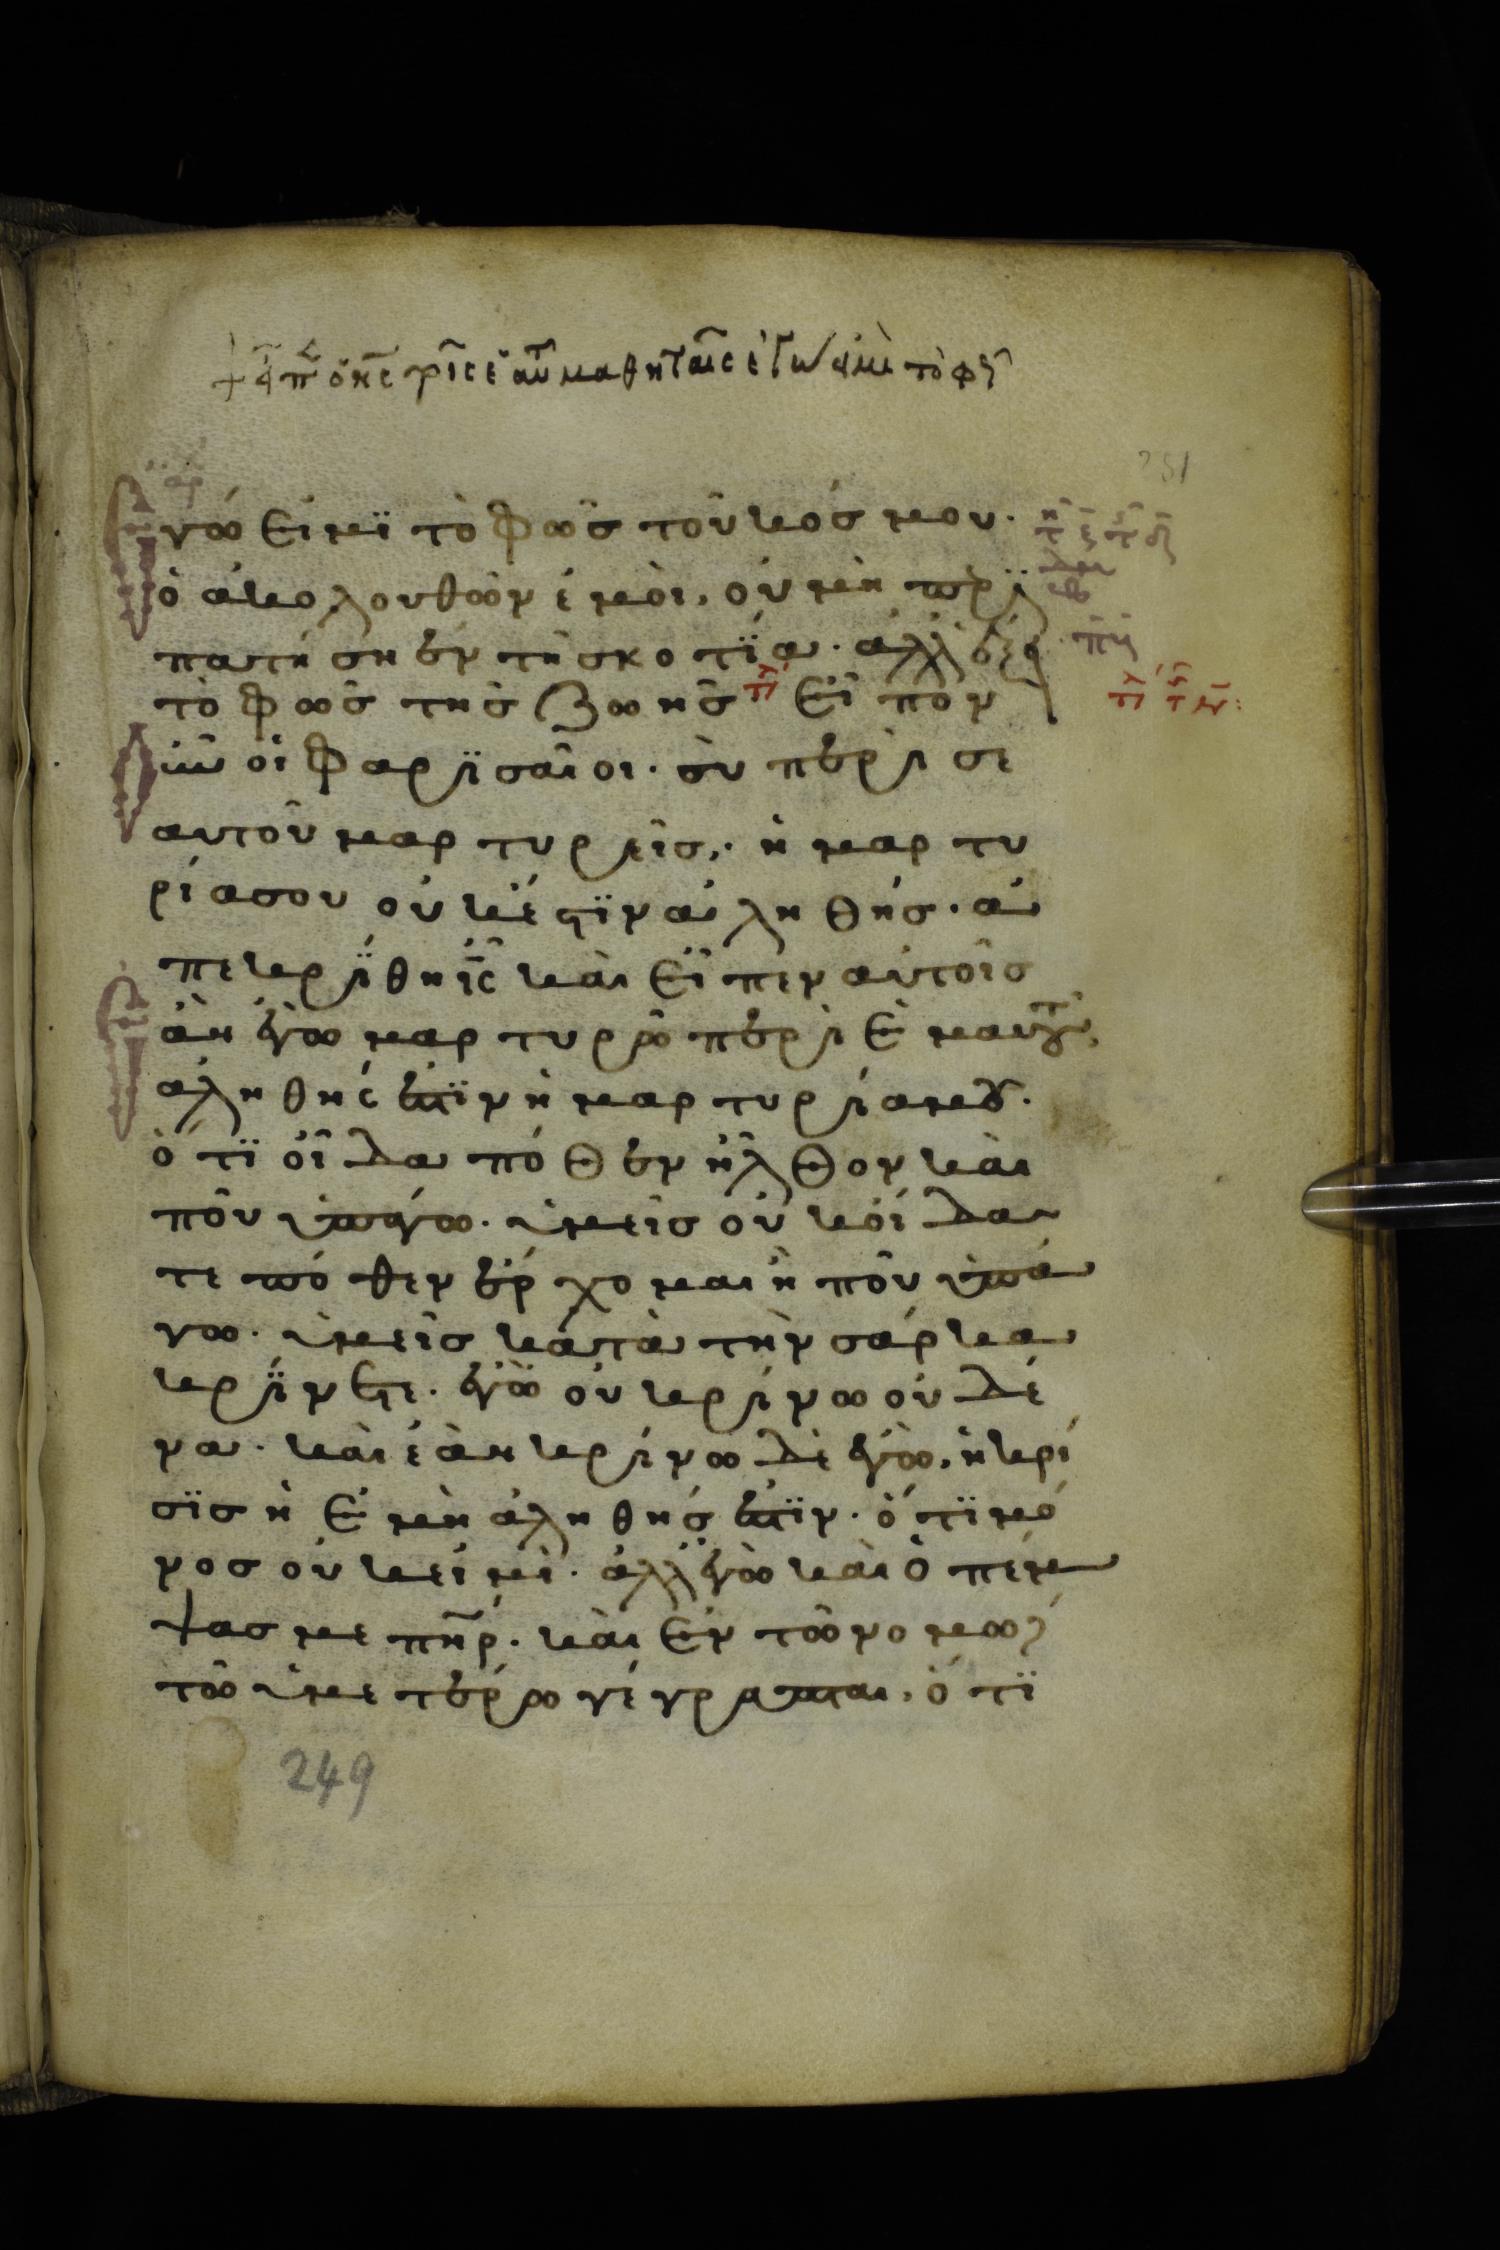 εἶπεν ὁ κς τοῖς ἑαυτ μαθηταῖς ἐγώ εἰμὶ τὸ φῶς
251
Ἐγώ εἰμϊ τὸ φῶς τοῦ κόσμου·
ὁ ἀκολουθῶν ἐμοὶ, οὐ μὴ περϊ
πατήσῃ ἐν τῇ σκοτΐα· ἀλλ ἕξει
τὸ φῶς τῆς ζωῆς Εἶπον
οὖν οἱ φαρϊσαῖοι· σὺ περὶ σε
αυτοῦ μαρτυρεῖς,· ἡ μαρτυ
ρία σου οὐκ ἔστϊν ἀληθής· ἀ
πεκρΐθη ις καὶ εἶπεν αὐτοῖς
Κἂν ἐγὼ μαρτυρῶ περὶ ἐμαυτοῦ,
ἀληθής ἐστϊν ἡ μαρτυρία μου·
ὅτϊ οἶδα πόθεν ἦλθον καὶ
ποῦ ὑπάγω· ὑμεῖς οὐκ οἴδα
τε πόθεν ἔρχομαι ἢ ποῦ ὑπά
γω· ὑμεῖς κατὰ τὴν σάρκα
κρΐνετε· ἐγὼ οὐ κρίνω οὐδέ
να· καὶ ἐὰν κρίνω δὲ ἐγὼ, ἡ κρί
σϊς ἡ ἐμὴ ἀληθής ἐστϊν· ὅτϊ μό
νος οὐκ εἰμὶ· ἀλλ ἐγὼ καὶ ὁ πέμ
ψας με πηρ· καὶ ἐν τῶ νόμω
τῶ ὑμετέρω γέγραπται, ὅτϊ
249